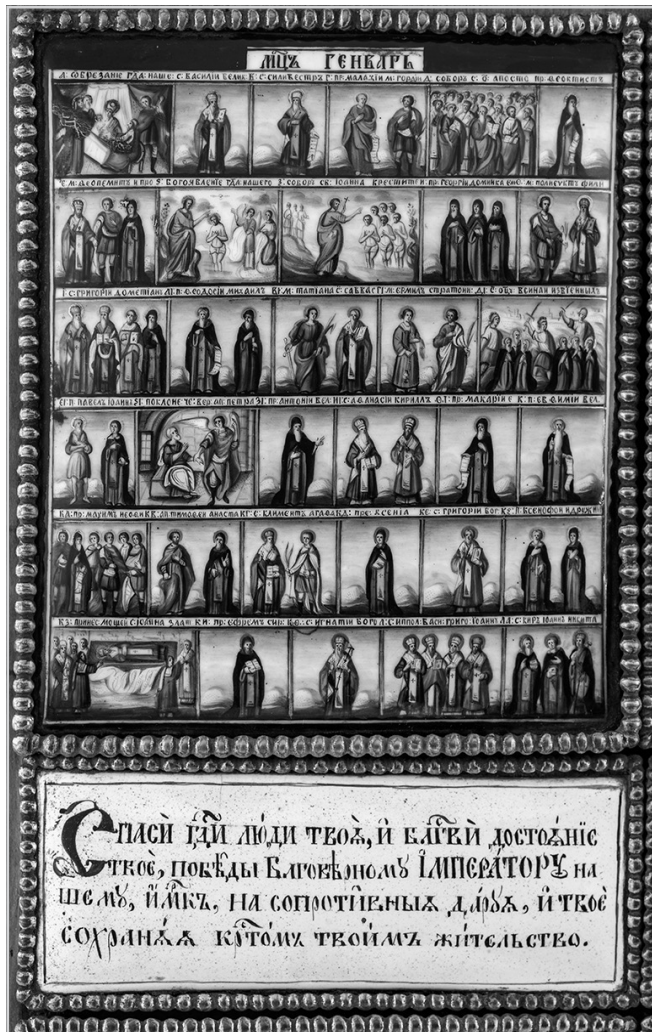 МЦЪ ГЕНВАРЬ
А҃: ОБРЕЗАНІЕ ГДА НАШЕ: С: ВАСИЛІИ ВЕЛИК В҃: С: СИЛИВЕСТРЪ Г҃: ПР: МАЛАХІИ М: ГОРДІИ Д҃: СОБОРЪ С: О҃: АПОСТО ПР: ѲЕОКТИСТЪ
Е҃: М: ѲЕОПЕМПТЪ И ПРО Ѕ҃: БОГОЯВЛЕНІЕ ГДА НАШЕГО З҃: СОБОРЪ СВ: ІОАННА КРЕСТИТЕ И҃: ПР: ГЕОРГІИ ДОМНИКА М: ПОЛИЕУКТЪ ФИЛИ
І҃: С: ГРИГОРІИ ДОМЕТІАНЪ АІ҃: П: ѲЕОДОСІИ МИХАИЛЪ ВІ҃: М: ТАТІАНА С: САВВА ГІ҃: М: ЕРМИЛЪ СТРАТОНИ: ДІ҃: С: ОЦЪ ВСИНАИ ИЗБІЕННЫХЪ
ЕІ҃: П: ПАВЕЛЪ ІОАННЪ ЅІ҃: ПОКЛОНЕ ЧЕ: ВЕР: АП: ПЕТРА ЗІ҃: ПР: АНТОНІИ ВЕЛ: ИІ҃: С: АѲАНАСІИ КИРИЛЛЪ ѲІ҃: ПР: МАКАРІИ Е К҃: П: ЕВѲИМІИ ВЕЛ
КА҃: ПР: МАѮИМЪ НЕОФИ КВ҃: АП ТИМОѲЕИ АНАСТА КГ҃: С: КЛИМЕНТЪ АГАѲА КД҃: ПРЕ: КСЕНІА КЕ҃: С: ГРИГОРІИ БОГ КЅ҃: П: КСЕНОФОН И ДРУЖИН
КЗ҃: ПРИНЕС МОЩЕИ С: ІОАННА ЗЛАТ КИ҃: ПР: ЕФРЕМЪ СИР: КѲ҃: С: ИГНАТІИ БОГО Л҃: С: ИППОЛ: ВАСИ: ГРИГО: ІОАНН: ЛА҃: С: КИРЪ ІОАННЪ НИКИТА
Спасѝ гд҃и лю́ди твоѧ̀, и҆ блгⷭ҇ви́ досто́ѧніе
ткоѐ, побѣ́ды Благовѣ́рному І҆МПЕРА́ТОРУ на
шему, и҆́мкъ, на сопроти́вныѧ да́руѧ, и҆ твоѐ
сохранѧ́ѧ крⷭ҇то́мъ твои́мъ жи́тельство.